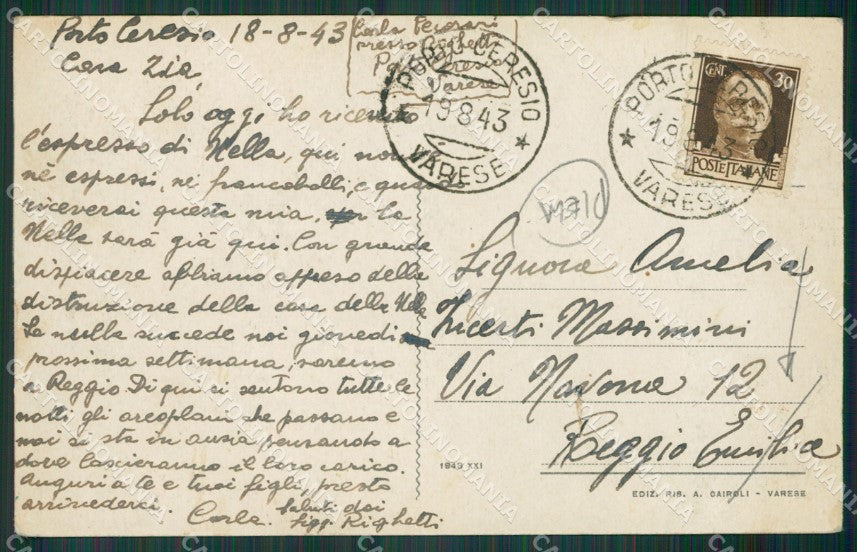 Porto Ceresio 18-8-43
Carla Ferrari
presso Righetti
Porto Ceresio
Varese
Cara Zia,
Solo oggi ho ricevuto
l'espresso di Nella, qui non
nè espressi, nè francobolli, e quando
riceverai questa mia, la
Nella sarà già qui. Con grande
dispiacere abbiamo appreso della
distruzione della casa della Nella
Se nulla succede noi giovedì
prossima settimana, saremo
a Reggio. Di qui si sentono tutte le
notti gli areoplani che passano e
noi si sta in ansia pensando a
dove lascieranno il loro carico.
Auguri a te e tuoi figli, presto
arrivederci.
Carla.
Saluti dai
Sigg. Righetti
PORTO CERESIO
19.8.43
VARESE
PORTO CERESIO
19.8.43
VARESE
CENT. 30
POSTE ITALIANE
Signora Amelia
Incerti Massimini
Via Navona 12
Reggio Emilia
1943 XXI
EDIZ. RIS. A. CAIROLI - VARESE
CARTOLINOMANIA